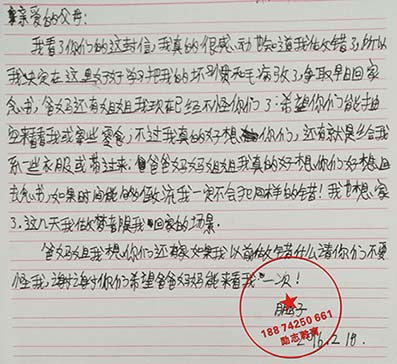 亲爱的父母:
我看了你们的这封信,我真的很感动也知道我做错了,所以
我决定在这里好好学习把我的坏习惯和毛病改了,争取早日回家
念书,爸妈还有姐姐我现在已经不怪你们了,希望你们能抽
空来看看我或寄些零食,不过我真的好想你们,还有就是给我
买一些衣服或带过来,爸爸妈妈姐姐我真的好想你们好想回
去念书,如果时间能够倒流我一定不会犯同样的错!我也想家
了.这几天我做梦都是我回家的场景.
爸妈姐我想你们还有家如果我以前做错什么请你们不要
怪我,谢谢你们希望爸爸妈妈能来看我一次!
子
18874250661
励志教育
2016.2.18.